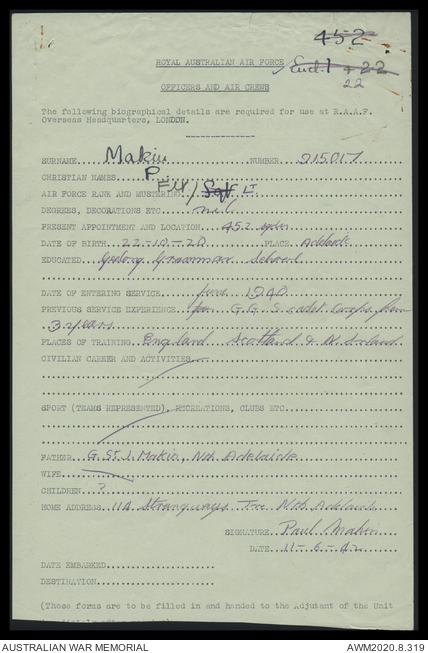 452
Encl. 1 + 22
22
ROYAL AUSTRALIAN AIR FORCE
OFFICERS AND AIR CREWS
The following biographical details are required for use at R.A.A.F.
Overseas Headquarters, LONDON.
SURNAME Makin NUMBER 215017
CHRISTIAN NAMES P.
AIR FORCE RANK AND MUSTERING F/Lt Sgt LT
DEGREES, DECORATIONS ETC nil
PRESENT APPOINTMENT AND LOCATION 452 sqdn
DATE OF BIRTH 22-10-20 PLACE Adelaide
EDUCATED Geelong Grammar School
DATE OF ENTERING SERVICE June 1940
PREVIOUS SERVICE EXPERIENCE G.G.S. cadet Corps for
3 years
PLACES OF TRAINING England Scotland & N. Ireland
CIVILIAN CAREER AND ACTIVITIES
SPORT (TEAMS REPRESENTED), RECREATIONS, CLUBS ETC
FATHER G. St. J. Makin, Nth Adelaide
WIFE
CHILDREN ?
HOME ADDRESS 114 Strangways Tce Nth Adelaide
SIGNATURE Paul Makin
DATE 11-6-42
DATE EMBARKED
DESTINATION
(These forms are to be filled in and handed to the Adjutant of the Unit
AUSTRALIAN WAR MEMORIAL AWM2020.8.319